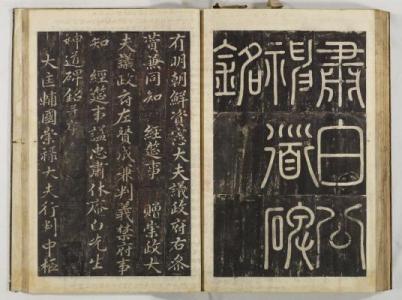 肅白公
神道碑
銘
有明朝鮮資憲大夫議政府右參
賛兼同知　經筵事　贈崇政大
夫議政府左賛成兼判義禁府事
知　經筵事諡忠肅休庵白先生
神道碑銘并序
大匡輔國崇祿大夫行判中樞